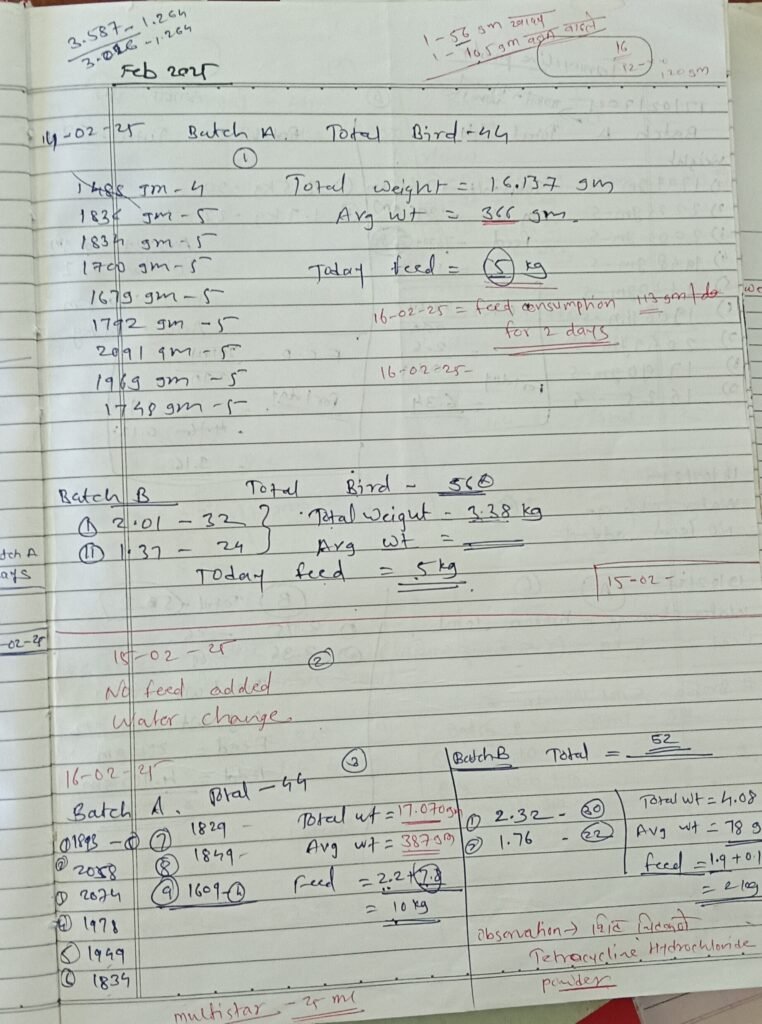 3.587 - 1.264
3.026 - 1.264
1-56 gm खाद्य
1- 10.5 gm वजन वाढले
16
12
120 gm
Feb 2025
14-02-25 Batch A. Total Bird - 44
①
1485 gm - 4 Total weight = 16.137 gm
1836 gm - 5 Avg wt = 366 gm.
1834 gm - 5
1700 gm - 5 Today feed = 5 kg
1679 gm - 5 16-02-25 = feed consumption 113 gm/
1792 gm - 5 for 2 days
2091 gm - 5
1969 gm - 5 16-02-25-
1748 gm - 5
Batch B Total Bird - 56
Ⓘ 2.01 - 32 Total weigut - 3.38 kg
Ⅱ 1.37 - 24 Avg wt =
Today feed = 5 kg
15-02-
tch A
ays
-02-25
15-02-25 ②
No feed added
Water change.
16-02-25 ③ Batch B Total = 52
Batch A. Total - 44
① 1893 - ⑦ 1829 - Total wt = 17.070 gm ① 2.32 - 30 Total wt = 4.08
② 2058 ⑧ 1849 - Avg wt = 387 gm ② 1.76 - 22 Avg wt = 78 g
③ 2074 ⑨ 1609 - 4 Feed = 2.2 + 7.8 feed = 1.9 + 0.1
④ 1978 = 10 kg = 2 kg
⑤ 1949 observation →
⑥ 1834 Tetracycline Hydrochloride
powder
multistar - 25 ml